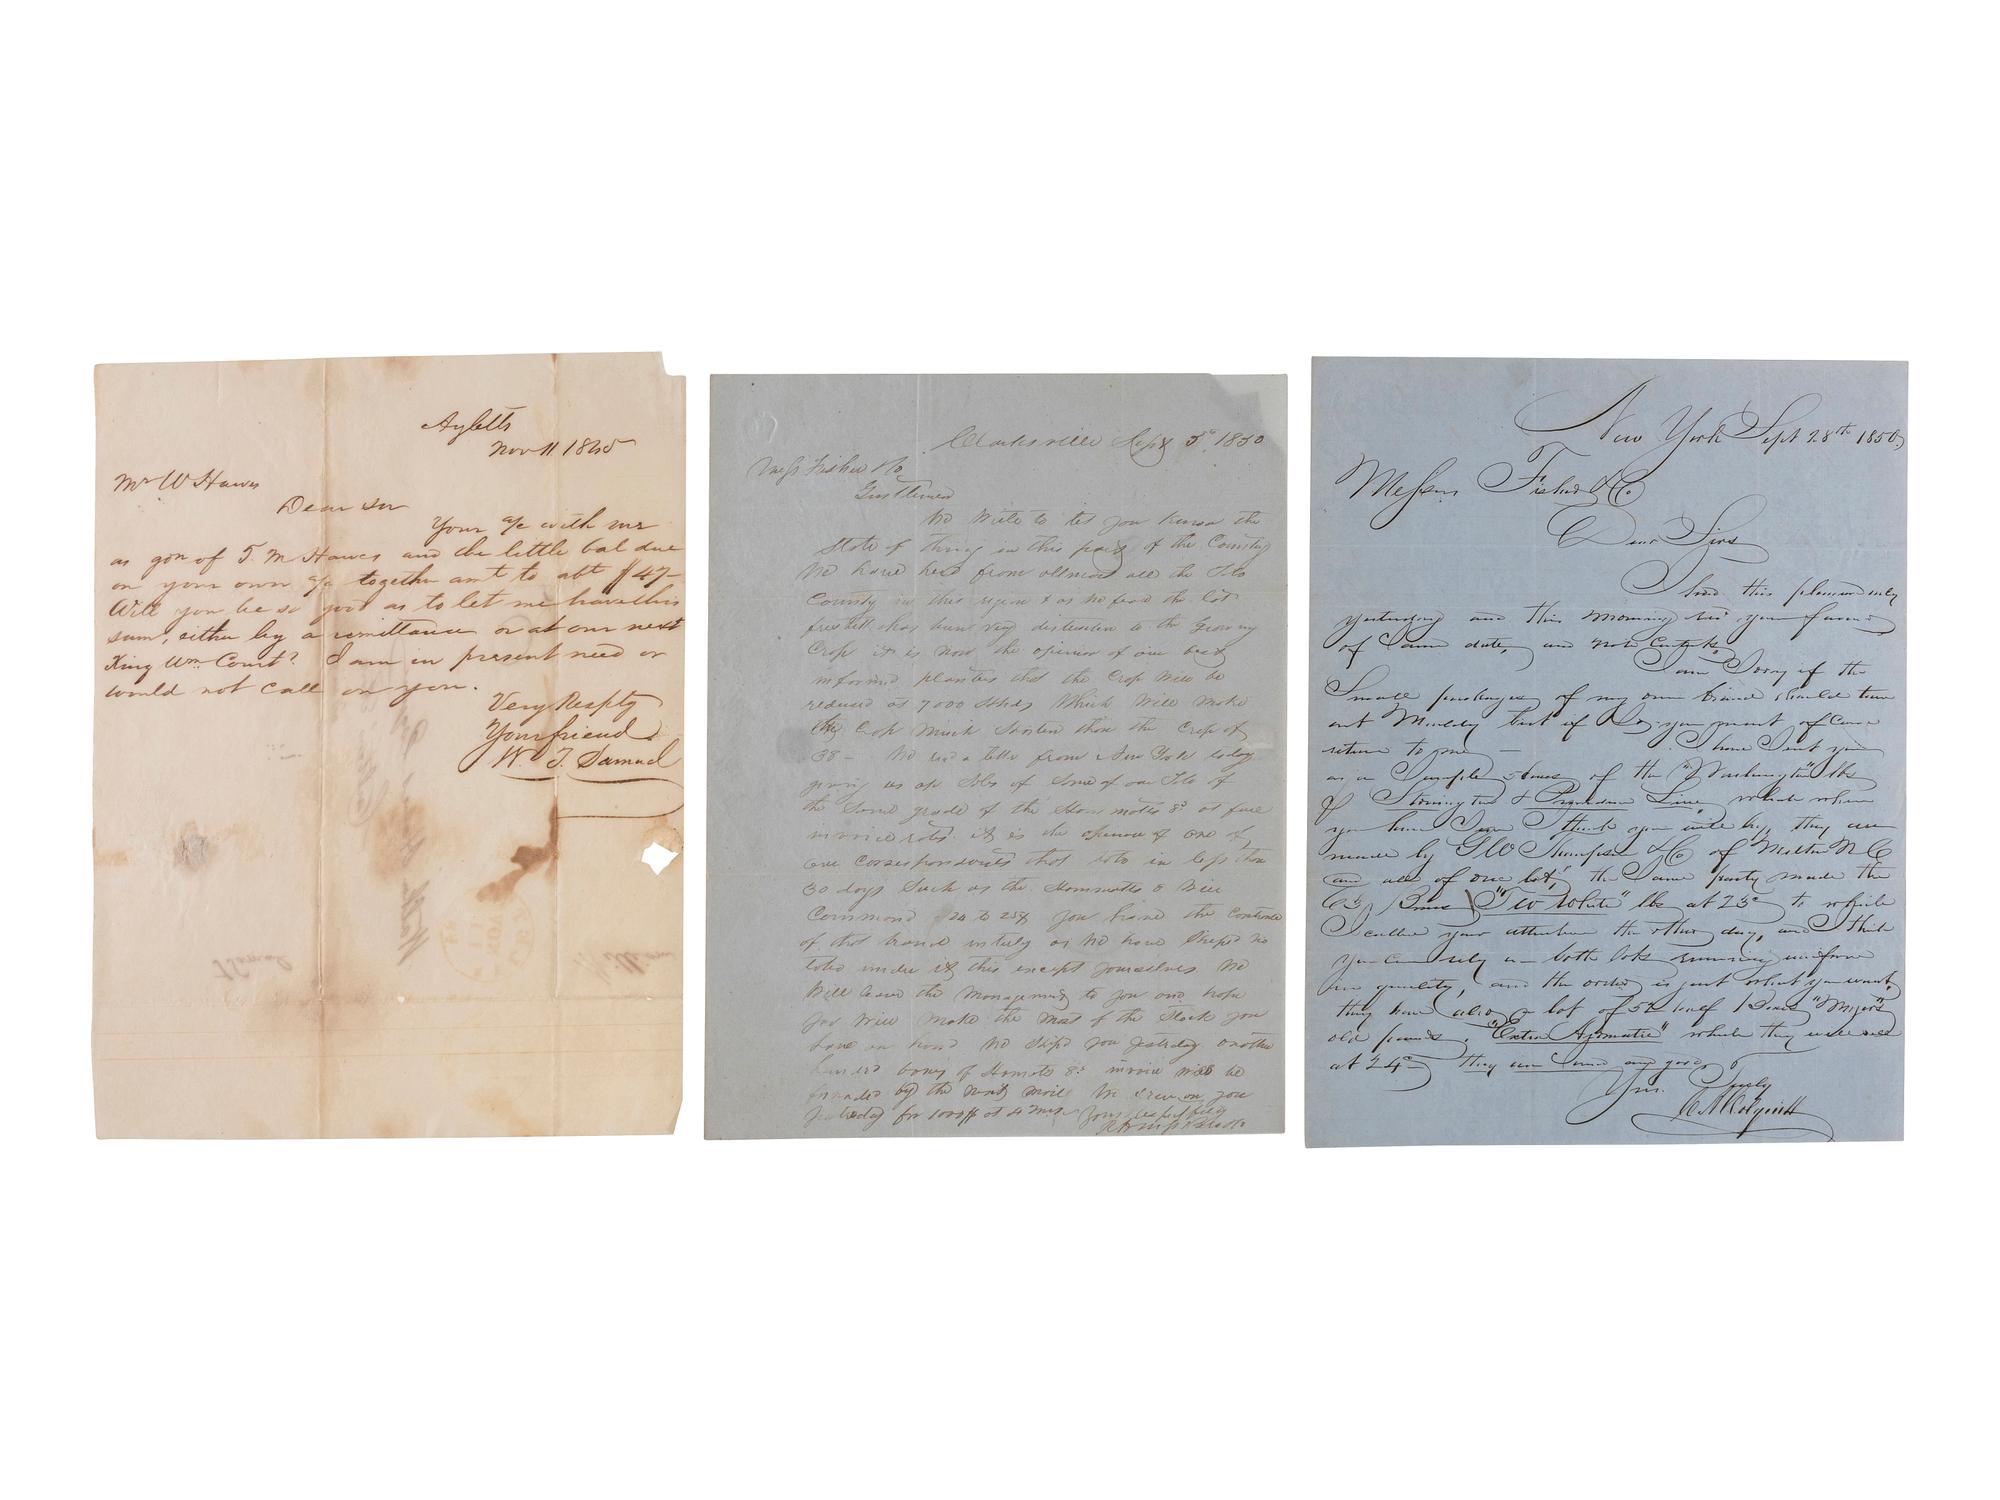 Ayletts
Nov 11 1845
Mr W Hawes
Dear Sir
Your a/c with me
as gdn of T. M Hawes and the little bal due
on your own a/c together amt to abt $47-
Will you be so good as to let me have this
sum, either by a remittance or at our next
King Wm Court? I am in present need or
would not call on you.
Very Respfy
Your friend
W. T. Samuel
Clarksville Sept 5th 1850
Mess Fisher & Co
Gentlemen
We Write to let you know the
State of things in this part of the Country
We have herd from allmost all the Tobo
County in this region & as we feard the late
freshett has been very distructive to the Growing
Crop it is now the opinion of our best
informed planters that the Crop Will be
reduced at 7000 Hhds Which Will make
the Crop Much Shorter than the Crop of
38 – We recd a letter from New York today
giving us a/c Sales of Some of our Tobo of
the Same grade of the 8s at full
invoice rates. it is the opinion of one of
our Correspondents that tobo in less than
30 days Such as the 8 Will
Command 24 to 25¢ you have the Controle
of that brand intirely as We have Shiped no
tobo under it this except yourselves We
Will leave the Management to you and hope
you Will make the most of the Stock you
have on hand We Shipd you yesterday another
hundred boxes of 8s invoice will be
forwarded by the next mail We drew on you
yesterday for 1000$ at 4 Mos Yours respectfully
New York Sept 28th 1850,
Messrs Fisher & Co
Dear Sirs
I had this pleasure only
yesterday and this morning recd your favour
of Same date, and note Contents.
I am Sorry if the
Small packages of my own brand should turn
out Mouldy but if So, you must of course
return to me – I have Sent you
as a Sample 5 boxes of the "Washington" lbs
p Stonington & Providence Line, which when
you have Seen I think you will buy, they are
made by Geo W Thompson & Co of Milton N C
and all of one lot, the Same party made the
63 Boxes "T W White" lbs at 23c to which
I called your attention the other day, and I think
you can rely on both lots running uniform
in quality, and the order is just what you want,
they have also a lot of 52 half Boxes "Meyers"
old pounds, "Extra Aromatic" which they will sell
at 24c they are Sound and good
Yrs. Truly